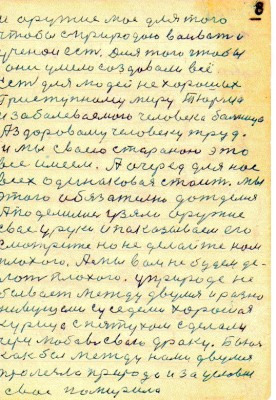 8
и оружие мое для того
чтобы с природою воевать и
ученое ест. Для того чтобы
они умело создовали всё
Ест для людей не хороших
Преступному миру тюрма
и заболеваемого человека больница
А здоровому человеку труд.
и мы своею стараною это
все имеем. А очеред для нас
всех одинаковая стоит. мы
этого обязательно
оружие
свае у руки и показываем его
смотрите но не делайте нам
плохого. А мы вам не будем де-
лать плохого. у природе не
бывает между двумя и разно
имущими суседями хорошая
курица с петухом сделали
драку. Бой
как был между нами двумя
природа и за условия
свое помирила